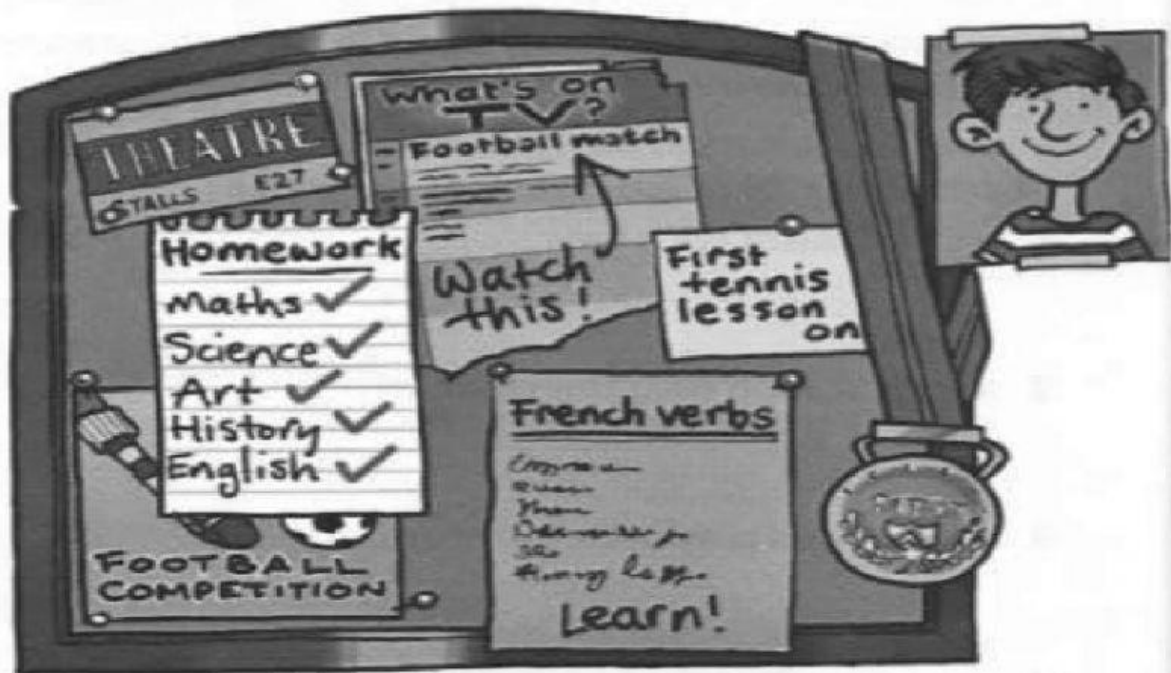 THEATRE
STALLS E27
What's on
TV?
Football match
Watch
this!
Homework
Maths
Science
Art
History
English
First
tennis
lesson
on
FOOTBALL
COMPETITION
French verbs
Learn!